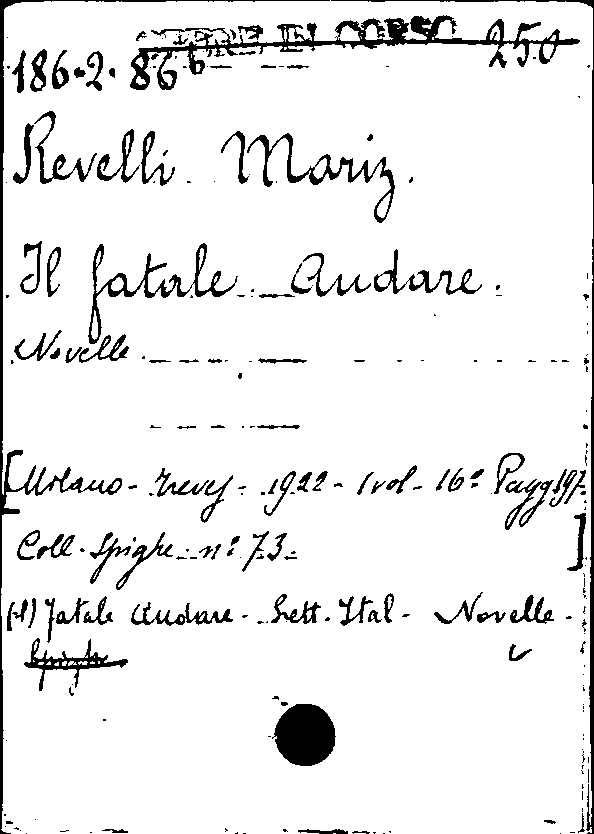 OPERE IN CORSO 250
186.2.86 b
Revelli Mariz.
Il fatale Andare.
Novelle.
[Milano - Treves - 1922 - 1 vol - 16° Pagg 197.
Coll. Spighe n° 73.]
(Il) fatale Andare - Lett. Ital - Novelle.
Spighe